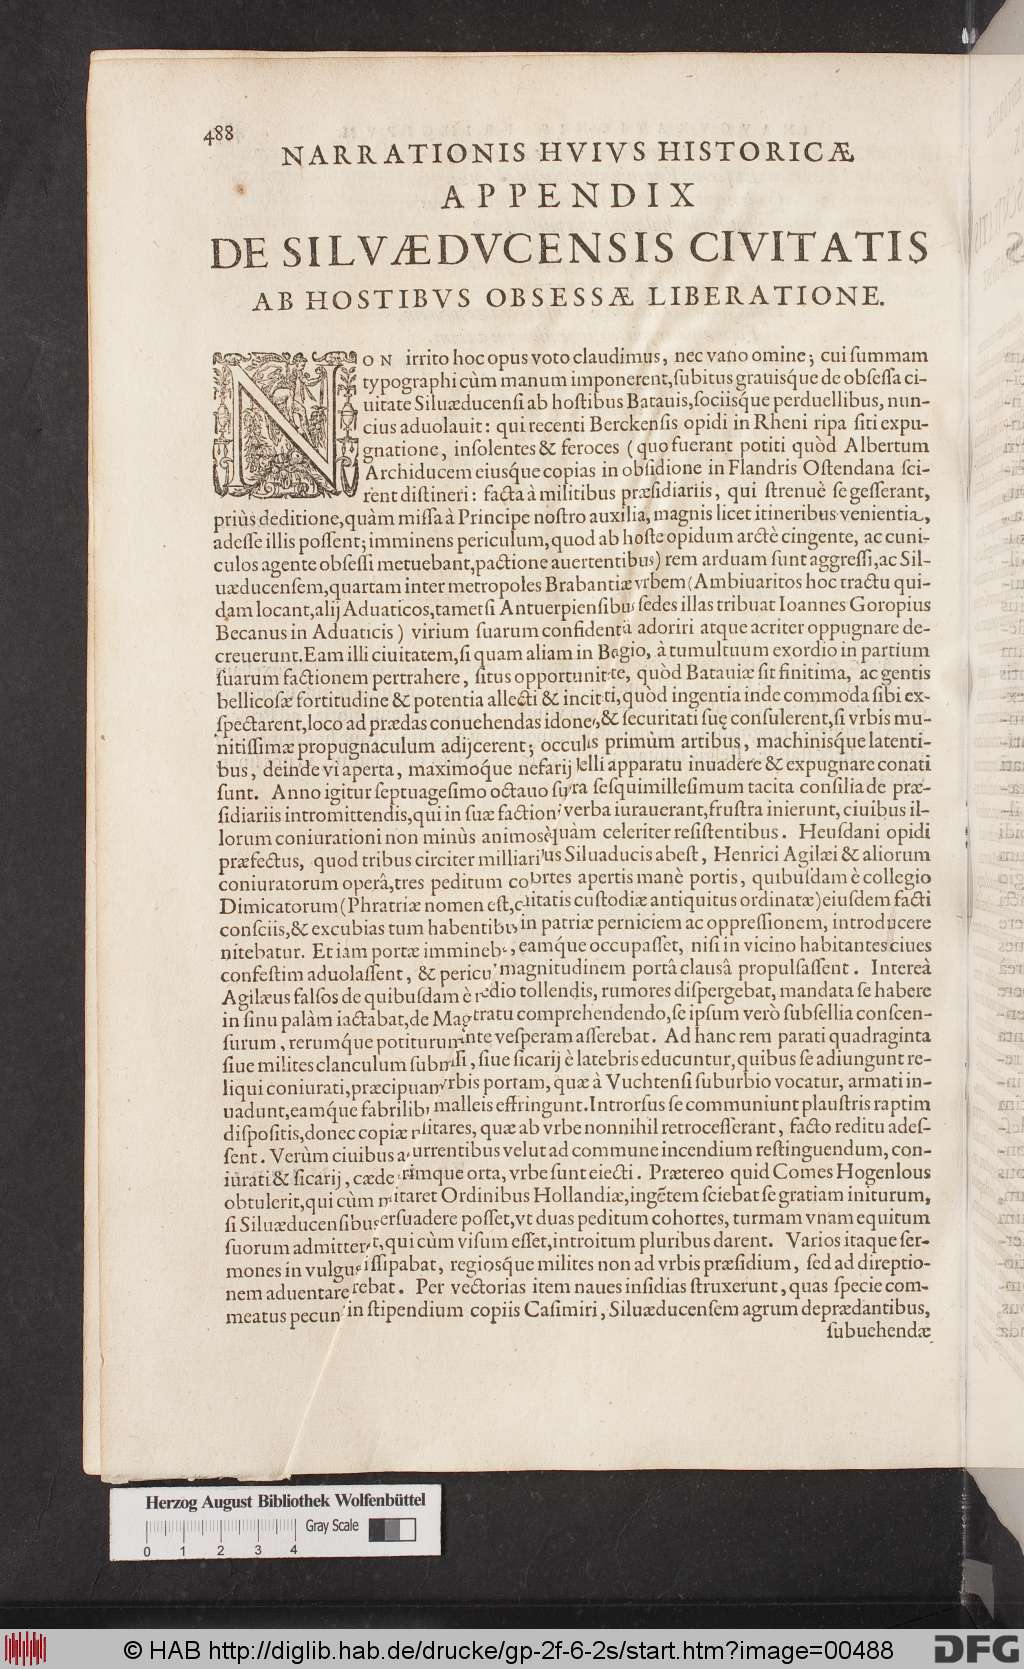 488
NARRATIONIS HVIVS HISTORICÆ
APPENDIX
DE SILVÆDVCENSIS CIVITATIS
AB HOSTIBVS OBSESSÆ LIBERATIONE.
NON irrito hoc opus voto claudimus, nec vano omine; cui ſummam
typographi cùm manum imponerent, ſubitus grauisq́ue de obſeſſa ci-
uitate Siluæducenſi ab hoſtibus Batauis, ſociisq́ue perduellibus, nun-
cius aduolauit: qui recenti Berckenſis opidi in Rheni ripa ſiti expu-
gnatione, inſolentes & feroces (quo fuerant potiti quòd Albertum
Archiducem eiusq́ue copias in obſidione in Flandris Oſtendana ſci-
rent diſtineri: facta à militibus præſidiariis, qui ſtrenuè ſe geſſerant,
priùs deditione, quàm miſſa à Principe noſtro auxilia, magnis licet itineribus venientia,
adeſſe illis poſſent; imminens periculum, quod ab hoſte opidum arctè cingente, ac cuni-
culos agente obſeſſi metuebant, pactione auertentibus) rem arduam ſunt aggreſſi, ac Sil-
uæducenſem, quartam inter metropoles Brabantiæ vrbem (Ambiuaritos hoc tractu qui-
dam locant, alij Aduaticos, tametſi Antuerpienſibus ſedes illas tribuat Ioannes Goropius
Becanus in Aduaticis) virium ſuarum confidentâ adoriri atque acriter oppugnare de-
creuerunt. Eam illi ciuitatem, ſi quam aliam in Bgio, à tumultuum exordio in partium
ſuarum factionem pertrahere, ſitus opportunitte, quòd Batauiæ ſit finitima, ac gentis
bellicoſæ fortitudine & potentia allecti & incitti, quòd ingentia inde commoda ſibi ex-
ſpectarent, loco ad prædas conuehendas idone, & ſecuritati ſuę conſulerent, ſi vrbis mu-
nitiſſimæ propugnaculum adijcerent; occuls primùm artibus, machinisq́ue latenti-
bus, deinde vi aperta, maximoq́ue nefarij elli apparatu inuadere & expugnare conati
ſunt. Anno igitur ſeptuageſimo octauo ſura ſeſquimilleſimum tacita conſilia de præ-
ſidiariis intromittendis, qui in ſuæ faction verba iurauerant, fruſtra inierunt, ciuibus il-
lorum coniurationi non minùs animosè quàm celeriter reſiſtentibus. Heuſdani opidi
præfectus, quod tribus circiter milliarius Siluaducis abeſt, Henrici Agilæi & aliorum
coniuratorum operâ, tres peditum cohortes apertis manè portis, quibuſdam è collegio
Dimicatorum (Phratriæ nomen eſt, ciitatis cuſtodiæ antiquitus ordinatæ) eiuſdem facti
conſciis, & excubias tum habentibus in patriæ perniciem ac oppreſſionem, introducere
nitebatur. Et iam portæ immineb, eamq́ue occupaſſet, niſi in vicino habitantes ciues
confeſtim aduolaſſent, & pericu magnitudinem portâ clausâ propulſaſſent. Intereà
Agilæus falſos de quibuſdam è redio tollendis, rumores diſpergebat, mandata ſe habere
in ſinu palàm iactabat, de Magtratu comprehendendo, ſe ipſum verò ſubſellia conſcen-
ſurum, rerumq́ue potiturum nte veſperam aſſerebat. Ad hanc rem parati quadraginta
ſiue milites clanculum ſubmiſſi, ſiue ſicarij è latebris educuntur, quibus ſe adiungunt re-
liqui coniurati, præcipuam vrbis portam, quæ à Vuchtenſi ſuburbio vocatur, armati in-
uadunt, eamq́ue fabrilib malleis effringunt. Introrſus ſe communiunt plauſtris raptim
diſpoſitis, donec copiæ ilitares, quæ ab vrbe nonnihil retroceſſerant, facto reditu adeſ-
ſent. Verùm ciuibus a urrentibus velut ad commune incendium reſtinguendum, con-
iurati & ſicarij, cæde rimque orta, vrbe ſunt eiecti. Prætereo quid Comes Hogenlous
obtulerit, qui cùm militaret Ordinibus Hollandiæ, ingẽtem ſciebat ſe gratiam initurum,
ſi Siluæducenſibus erſuadere poſſet, vt duas peditum cohortes, turmam vnam equitum
ſuorum admittert, qui cùm viſum eſſet, introitum pluribus darent. Varios itaque ſer-
mones in vulgus iſſipabat, regiosq́ue milites non ad vrbis præſidium, ſed ad direptio-
nem aduentare rebat. Per vectorias item naues inſidias ſtruxerunt, quas ſpecie com-
meatus pecun in ſtipendium copiis Caſimiri, Siluæducenſem agrum deprædantibus,
ſubuehendæ
Herzog August Bibliothek Wolfenbüttel
Gray Scale
0 1 2 3 4
© HAB http://diglib.hab.de/drucke/gp-2f-6-2s/start.htm?image=00488
DFG